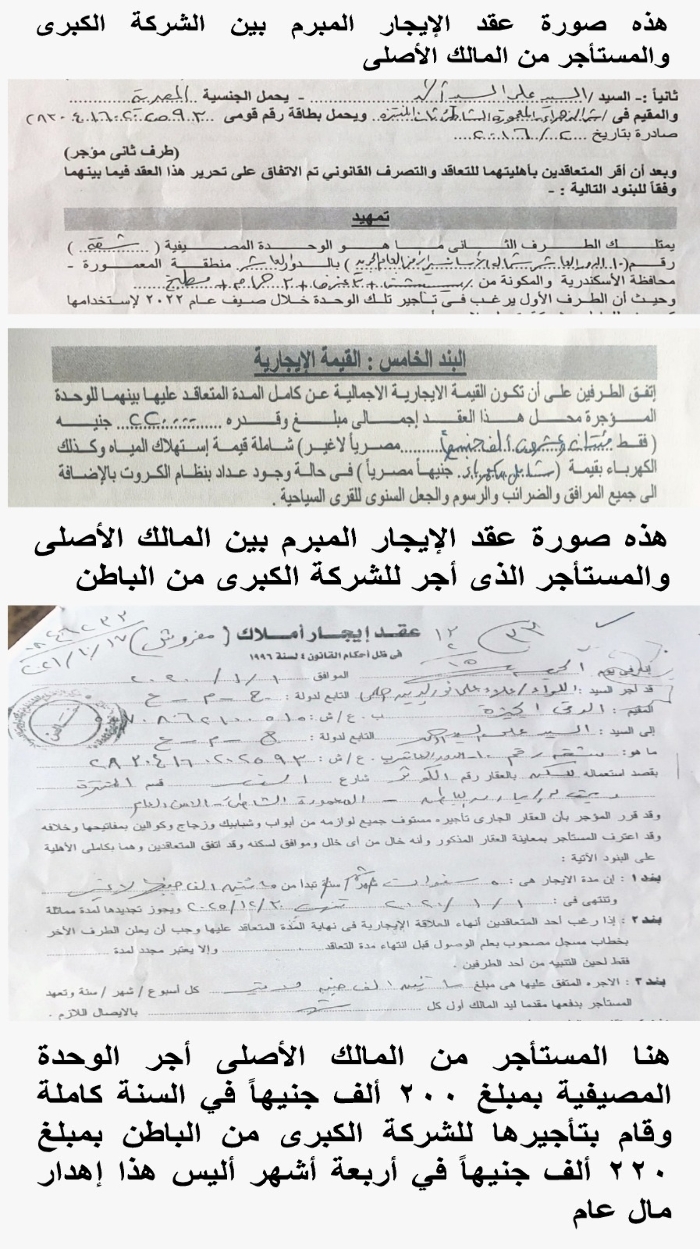 هذه صورة عقد الإيجار المبرم بين الشركة الكبرى
والمستأجر من المالك الأصلى
ثانياً :- السيد / السيد على السيد - يحمل الجنسية المصرية
والمقيم فى ويحمل بطاقة رقم قومى ٢٨٣٠٤١٦٠٢٠٢٥٩٣
صادرة بتاريخ ٢٠١٦/٢
(طرف ثانى مؤجر)
وبعد أن أقر المتعاقدين بأهليتهما للتعاقد والتصرف القانوني تم الاتفاق على تحرير هذا العقد فيما بينهما
وفقاً للبنود التالية : -
تمهيد
يمتلك الطرف الثانى ما هو الوحدة المصيفية ( شقة )
رقم (١٠ الدور العاشر ) بالدور العاشر منطقة المعمورة -
محافظة الأسكندرية والمكونة من + ٣ غرف + ٢ حمام + مطبخ
وحيث أن الطرف الأول يرغب فى تأجير تلك الوحدة خلال صيف عام ٢٠٢٢ لإستخدامها
البند الخامس : القيمة الإيجارية
إتفق الطرفين على أن تكون القيمة الايجارية الاجمالية عن كامل المدة المتعاقد عليها بينهما للوحدة
المؤجرة محل هذا العقد إجمالى مبلغ وقدره ٢٢٠٠٠٠ جنيه
( فقط مئتان وعشرون الف جنيهاً مصرياً لاغير) شاملة قيمة إستهلاك المياه وكذلك
الكهرباء بقيمة ( جنيهاً مصرياً ) فى حالة وجود عداد بنظام الكروت بالإضافة
الى جميع المرافق والضرائب والرسوم والجعل السنوى للقرى السياحية .
هذه صورة عقد الإيجار المبرم بين المالك الأصلى
والمستأجر الذى أجر للشركة الكبرى من الباطن
عقد إيجار أملاك ( مفروش )
فى ظل أحكام القانون ٤ لسنة ١٩٩٦
إنه فى يوم الموافق ٢٠٢٠/١/١
قد أجر السيد : اللواء / علاء على نور الدين التابع لدولة : ج - م - ع
المقيم : الدقى الجيزة ب . ع / ش :
إلى السيد : السيد على السيد التابع لدولة : ج - م - ع
ما هو : شقة رقم ١٠ الدور العاشر ب . ع / ش : ٢٨٣٠٤١٦٠٢٠٢٥٩٣
بقصد استعماله للسكن بالعقار رقم شارع قسم المنتزة
وقد قرر المؤجر بأن العقار الجارى تأجيره مستوف جميع لوازمه من أبواب وشبابيك وزجاج وكوالين بمفاتيحها وخلافه
وقد اعترف المستأجر بمعاينة العقار المذكور وأنه خال من أى خلل وموافق لسكنه وقد اتفق المتعاقدين وهما بكاملى الأهلية
على البنود الآتية :
بند ١ : إن مدة الايجار هى : سنوات تبدأ من
٢٠٢٠/١/١ وتنتهى فى : ٢٠٢٥/١٢/٣٠ ويجوز تجديدها لمدة مماثلة
بند ٢ : إذا رغب أحد المتعاقدين أنهاء العلاقة الإيجارية فى نهاية المدة المتعاقد عليها وجب أن يعلن الطرف الآخر
بخطاب مسجل مصحوب بعلم الوصول قبل انتهاء مدة التعاقد وإلا يعتبر مجدد لمدة
فقط لحين التنبيه من أحد الطرفين .
بند ٣ : الاجره المتفق عليها هى مبلغ الف جنيه كل أسبوع / شهر / سنة وتعهد
المستأجر بدفعها مقدما ليد المالك أول كل بالايصال اللازم .
هنا المستأجر من المالك الأصلى أجر الوحدة
المصيفية بمبلغ ٢٠٠ ألف جنيهاً في السنة كاملة
وقام بتأجيرها للشركة الكبرى من الباطن بمبلغ
٢٢٠ ألف جنيهاً في أربعة أشهر أليس هذا إهدار
مال عام